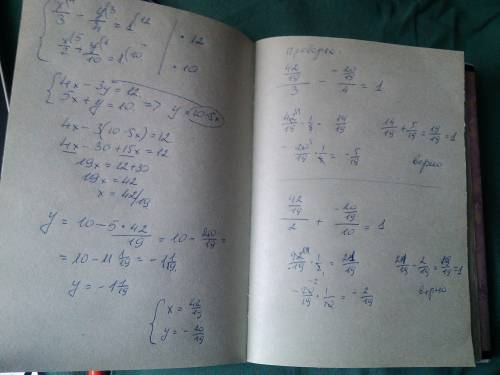 { x/3 - y/4 = 1 |12 | · 12
x/2 + y/10 = 1 |10 | · 10
{ 4x - 3y = 12
5x + y = 10 => y = 10-5x
4x - 3(10-5x) = 12
4x - 30 + 15x = 12
19x = 12+30
19x = 42
x = 42/19
y = 10 - 5·42/19 = 10 - 210/19 =
= 10 - 11 1/19 = -1 1/19
y = -1 1/19
{ x = 42/19
y = - 20/19
Проверка:
42/19/3 - -20/19/4 = 1
42/19 · 1/3 = 14/19
- 20/19 · 1/4 = - 5/19
14/19 + 5/19 = 19/19 = 1
верно
42/19/2 + -20/19/10 = 1
42/19 · 1/2 = 21/19
- 20/19 · 1/10 = - 2/19
21/19 - 2/19 = 19/19 = 1
верно